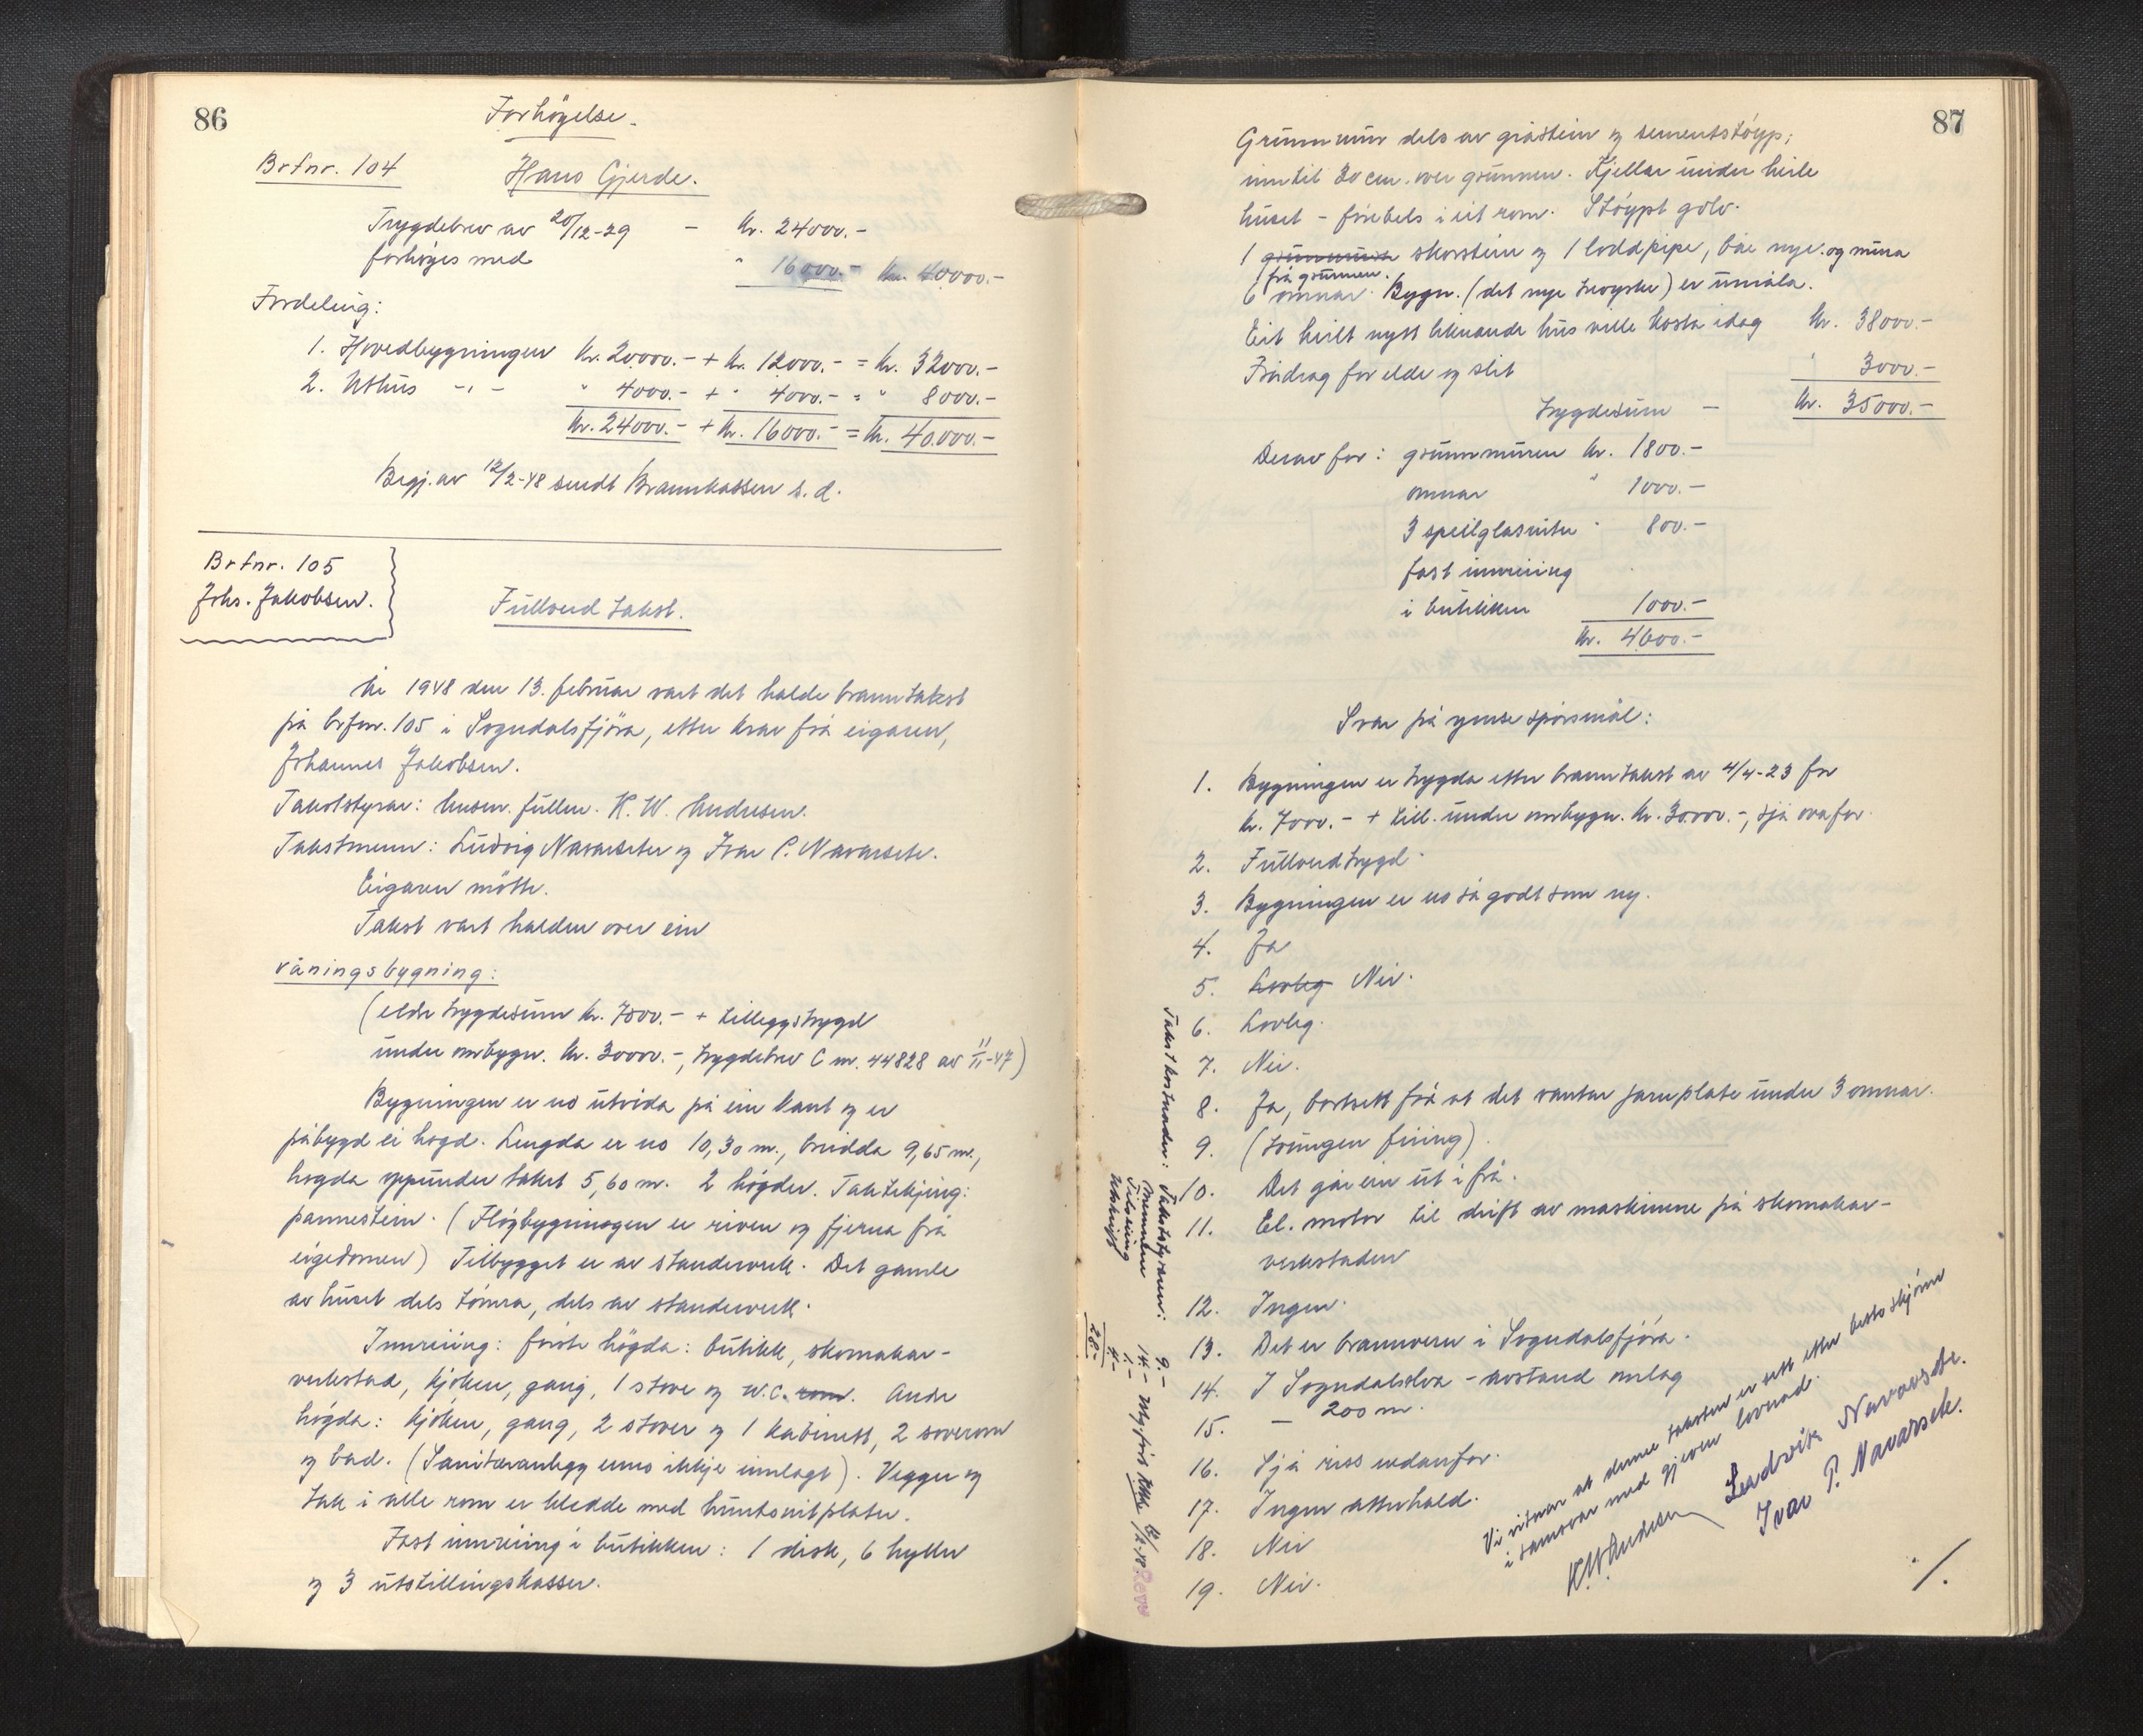 86
Forhögelse.
Brfnr. 104
Hans Gjerde.
Trygdebrev av 20/12-29 - kr. 24000.-
forhöges med " 16000.- kr. 40000.-
Fordeling:
1. Hovedbygningen kr. 20000.- + kr. 12000.- = kr. 32000.-
2. Uthus -"- " 4000.- + " 4000.- = " 8000.-
kr. 24000.- + kr. 16000.- = kr. 40.000.-
Begj. av 12/2-48 sendt Brannkassen s. d.
Brfnr. 105
Johs. Jakobsen.
Fullverd takst.
År 1948 den 13. februar vart det halde branntakst
på brfnr. 105 i Sogndalsfjöra, etter krav frå eigaren,
Johannes Jakobsen.
Takststyrar: lensm. fullm. K. W. Andresen.
Takstmenn: Ludvig Navarsete og Ivar P. Navarsete.
Eigaren mötte.
Takst vart halden over ein
våningsbygning:
(eldre trygdesum kr. 7000.- + tilleggstrygd
under ombygn. kr. 30000.-, trygdebrev C nr. 44828 av 11/11-47)
Bygningen er no utvida på ein kant og er
påbygd ei högd. Lengda er no 10,30 m., breidda 9,65 m.,
högda oppunder taket 5,60 m. 2 högder. Taktekjing:
pannestein. (Flöybygningen er riven og fjerna frå
eigedomen) Tilbygget er av standerverk. Det gamle
av huset dels tömra, dels av standerverk.
Innreiing: fyrste högda: butikk, skomakar-
verkstad, kjöken, gang, 1 stove og W.C. rom. Andre
högda: kjöken, gang, 2 stover og 1 kabinett, 2 soverom
og bad. (Sanitæranlegg enno ikkje innlagt). Vegger og
tak i alle rom er kledde med huntonitplater.
Fast innreiing i butikken: 1 disk, 6 hyller
og 3 utstillingskasser.
87
Grunnmur dels av gråstein og sementstöyp,
inntil 30 cm. over grunnen. Kjellar under heile
huset - förebels i eit rom. Stöypt golv.
1 grunnmur skorstein og 1 loddpipe, båe nye og mura
frå grunnen.
6 omnar. Bygn. (det nye treverket) er umåla.
Eit heilt nytt liknande hus ville kosta idag kr. 38000.-
Frådrag for elde og slit " 3000.-
trygdesum - kr. 35000.-
Derav for: grunnmuren kr. 1800.-
omnar " 1000.-
3 speilglasruter " 800.-
fast innreiing
i butikken 1000.-
kr. 4600.-
Svar på ymse spörsmål:
1. Bygningen er trygda etter branntakst av 4/4-23 for
kr. 7000.- + till. under ombygn. kr. 30000.-, sjå ovafor.
2. Fullverdtrygd.
3. Bygningen er no så godt som ny.
4. Ja
5. Lovleg Nei.
6. Lovleg.
7. Nei.
8. Ja, bortsett frå at det vantar jarnplate under 3 omnar.
9. (Ingen fyring).
10. Det går ein ut i frå.
11. El. motor til drift av maskinene på skomakar-
verkstaden
12. Ingen.
13. Det er brannvern i Sogndalsfjöra.
14. I Sogndalselva - avstand omlag
15. - 200 m.
16. Sjå riss nedanfor.
17. Ingen atterhald.
18. Nei
19. Nei.
Takstkostnader: Takststyraren: 9.-
mennene 14.-
Tilseiing 1.-
Utskrift 4.-
28.-
Vi vitnar at denne taksten er sett etter beste skjönn
i samsvar med gjeven lovnad.
KWAndresen Ludvik Navarsete.
Ivar P. Navarsete.
./.